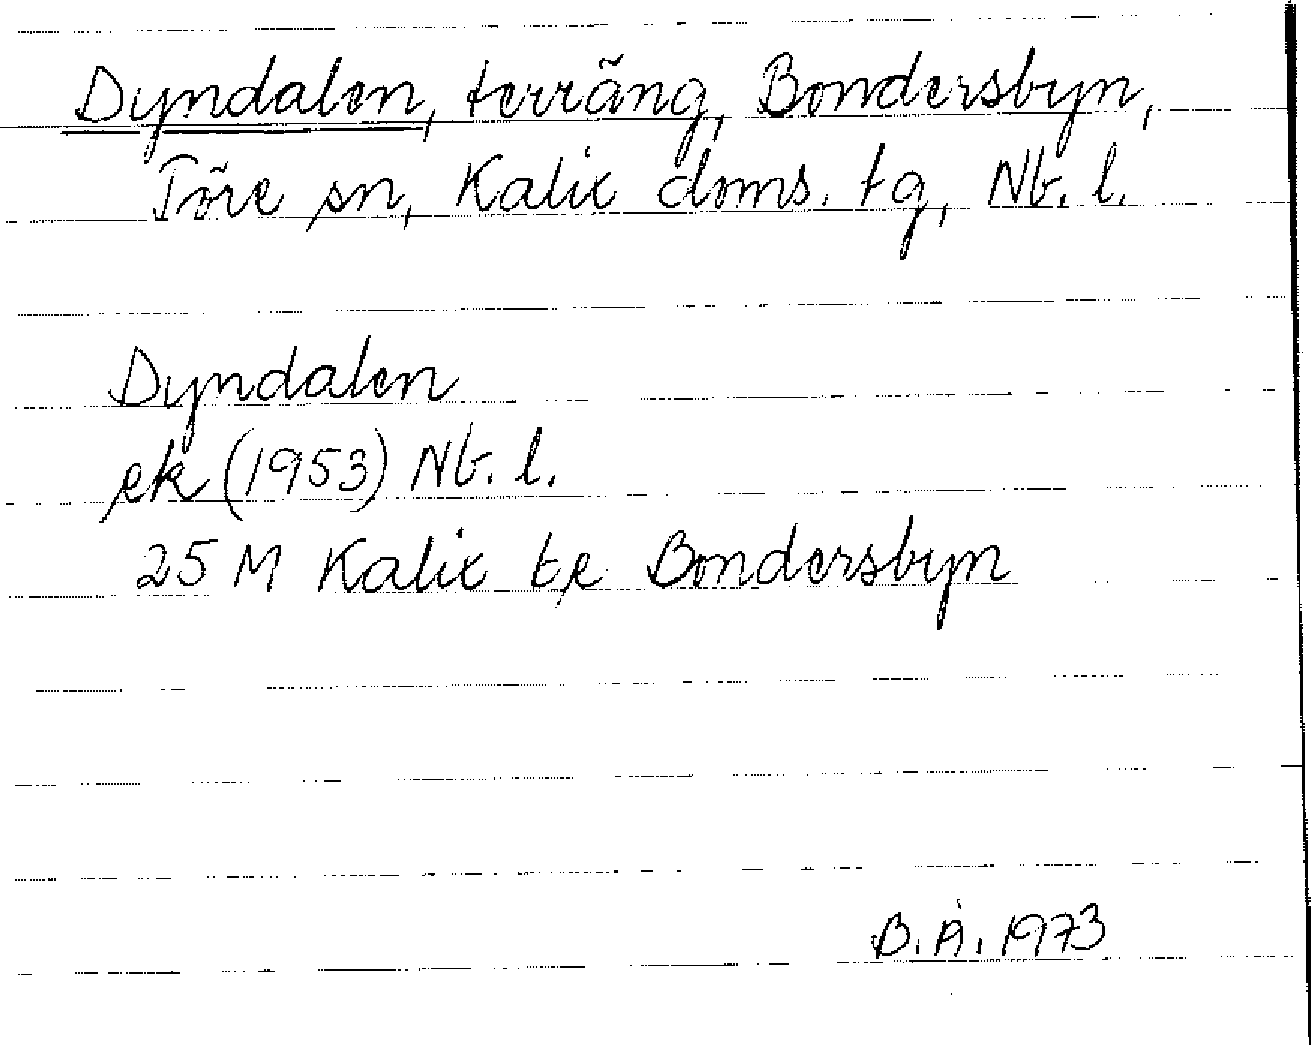 Dyndalen, terräng, Bondersbyn,
Töre sn, Kalix doms. tg, Nb. l.
Dyndalen
ek (1953) Nb. l.
25 M Kalix
Bondersbyn
B. Å. 1973